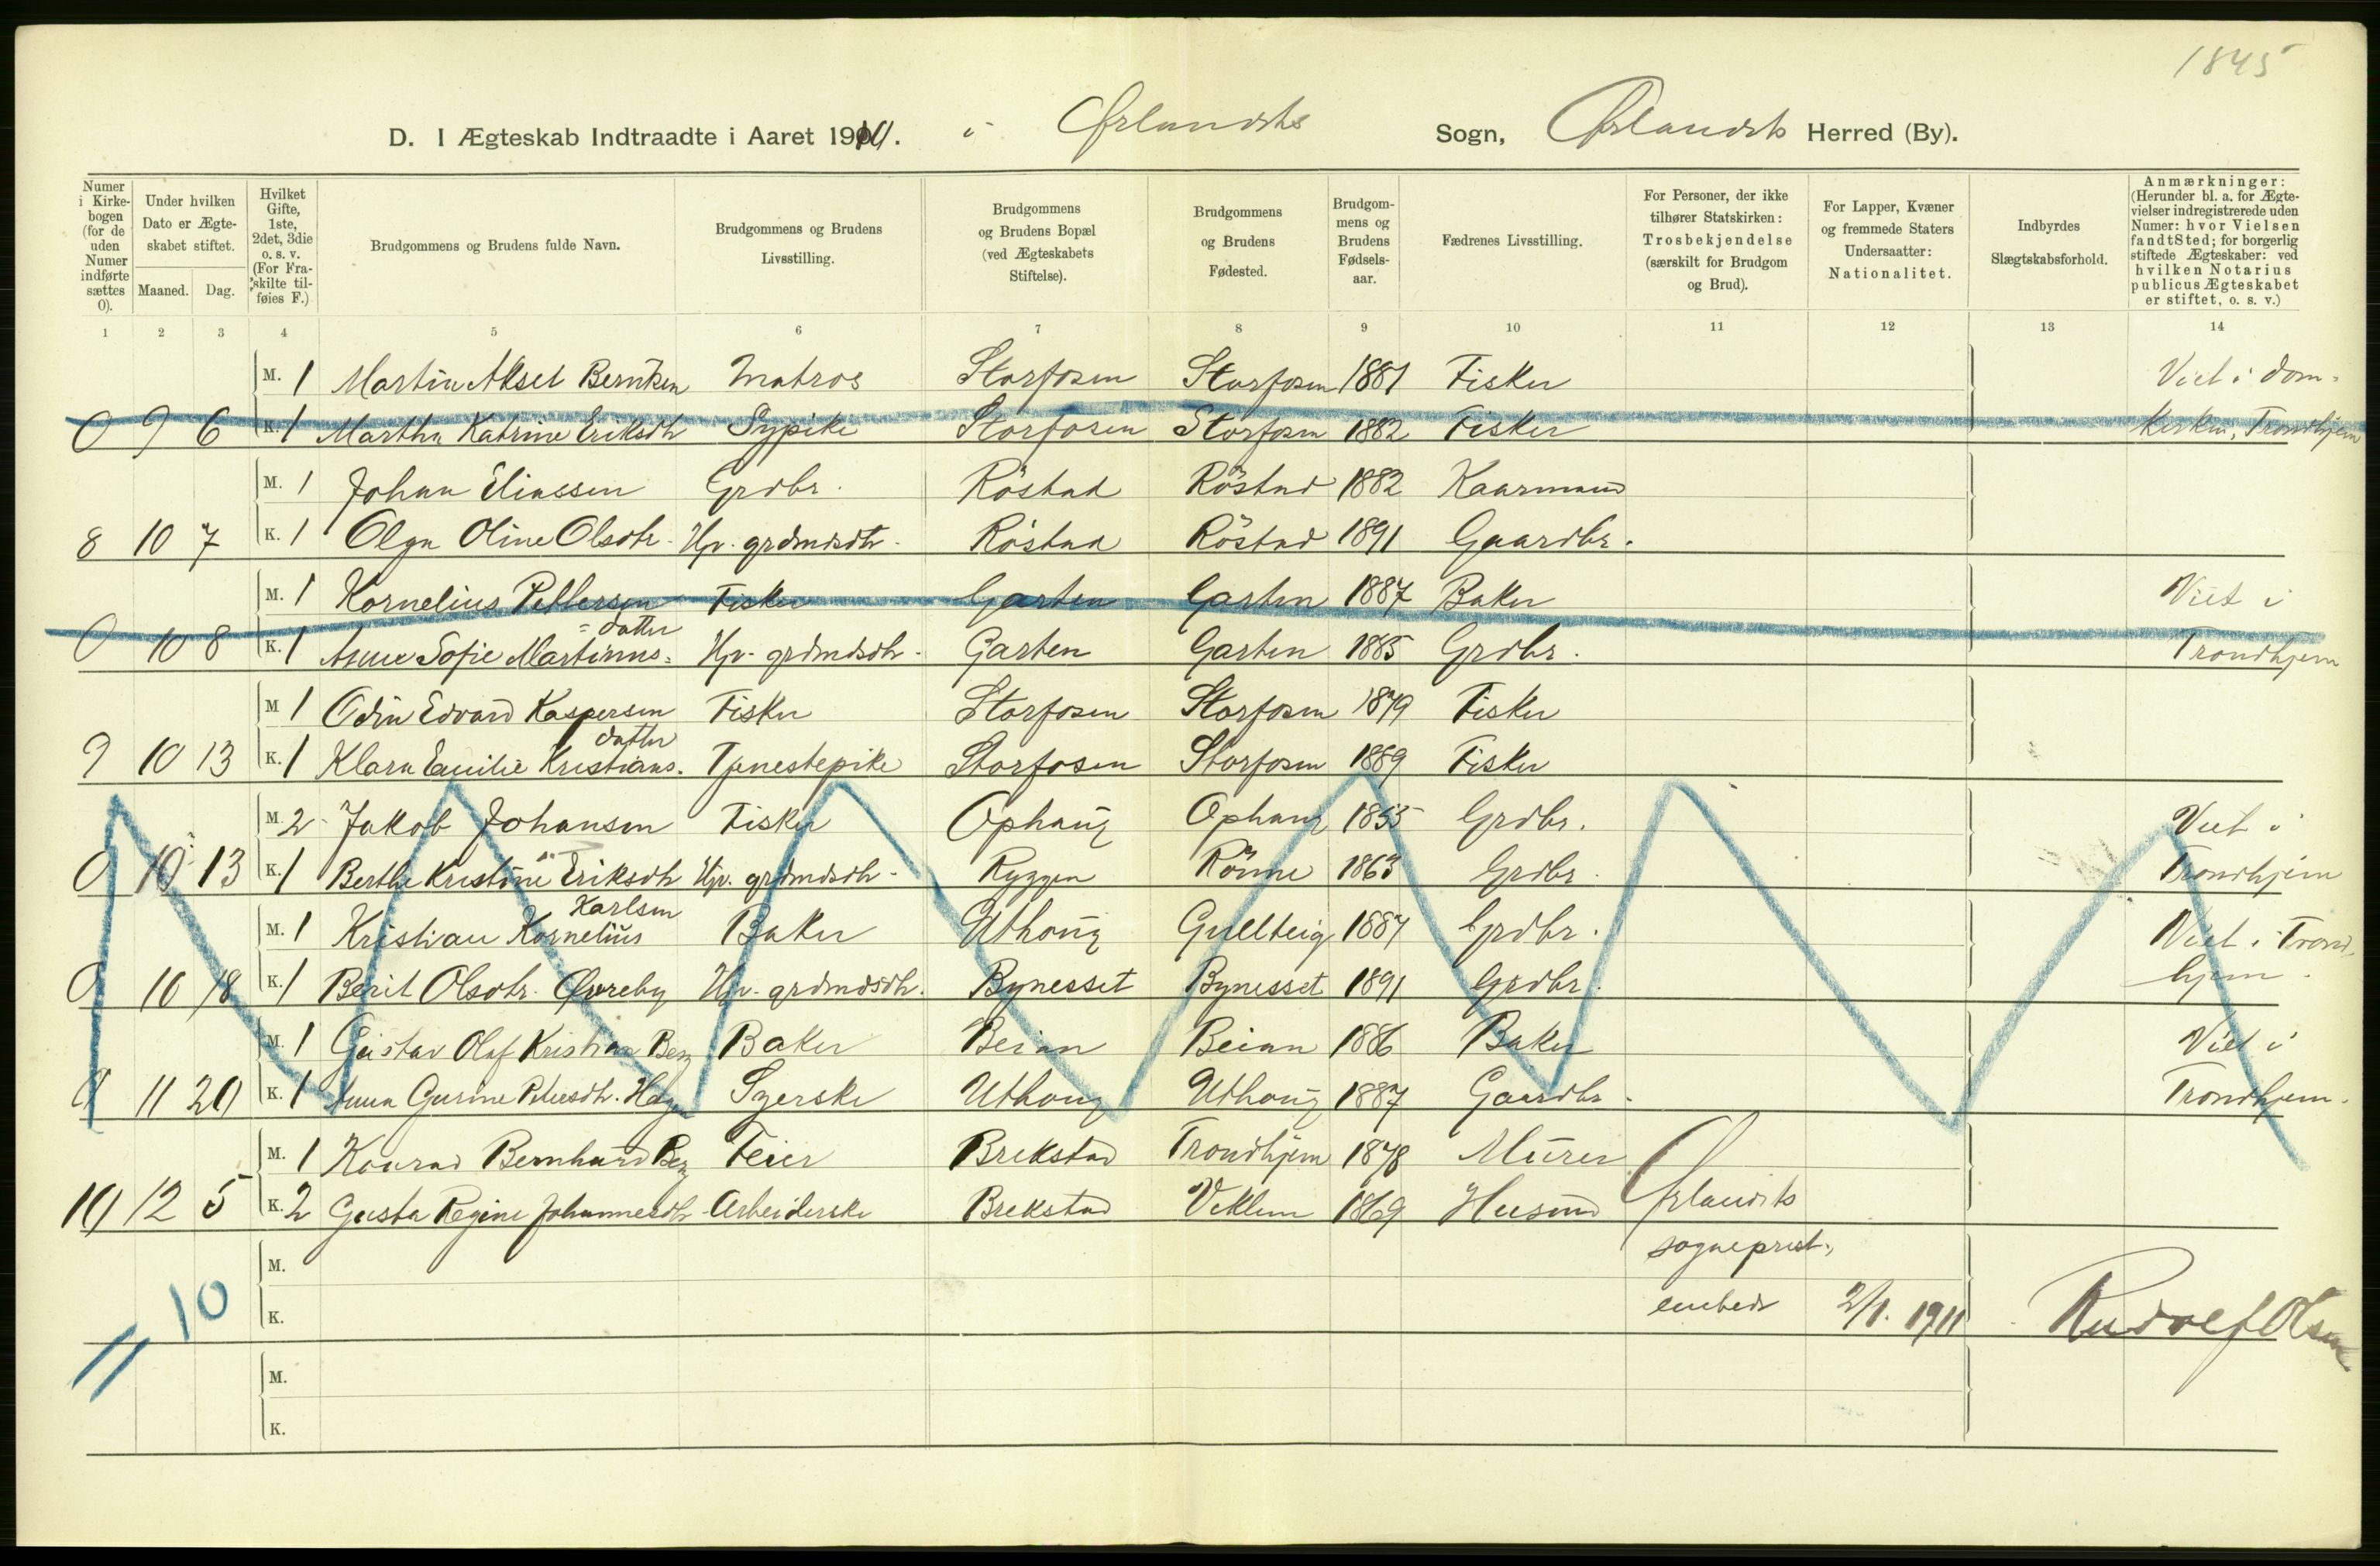 1845
D. I Ægteskab Indtraadte i Aaret 1910. i Ørlandets Sogn, Ørlandets Herred (By).
Numer i Kirkebogen (for de uden Numer indførte sættes 0). Under hvilken Dato er Ægteskabet stiftet. Maaned. Dag. Hvilket Gifte, 1ste, 2det, 3die o. s. v. (For Fraskilte tilføies F.) Brudgommens og Brudens fulde Navn. Brudgommens og Brudens Livsstilling. Brudgommens og Brudens Bopæl (ved Ægteskabets Stiftelse). Brudgommens og Brudens Fødested. Brudgommens og Brudens Fødselsaar. Fædrenes Livsstilling. For Personer, der ikke tilhører Statskirken: Trosbekjendelse (særskilt for Brudgom og Brud). For Lapper, Kvæner og fremmede Staters Undersaatter: Nationalitet. Indbyrdes Slægtskabsforhold. Anmærkninger: (Herunder bl. a. for Ægtevielser indregistrerede uden Numer: hvor Vielsen fandt Sted; for borgerlig stiftede Ægteskaber: ved hvilken Notarius publicus Ægteskabet er stiftet, o. s. v.)
1 2 3 4 5 6 7 8 9 10 11 12 13 14
M. 1 Martin Aksel Berntsen Matros Storfosen Storfosen 1881 Fisker Viet i Dom-
0 9 6 K. 1 Martha Katrine Eriksdtr Sypike Storfosen Storfosen 1882 Fisker kirken, Trondhjem
M. 1 Johan Eliassen Grdbr. Röstad Röstad 1882 Kaarmand
8 10 7 K. 1 Olga Oline Olsdtr. Hjv. grdmdsdtr. Röstad Röstad 1891 Gaardbr.
M. 1 Kornelius Pettersen Fisker Garten Garten 1887 Baker Viet i
0 10 8 K. 1 Anne Sofie Martinus=datter Hjv. grdmdsdtr. Garten Garten 1885 Grdbr. Trondhjem
M 1 Odin Edvard Kaspersen Fisker Storfosen Storfosen 1879 Fisker
9 10 13 K. 1 Klara Emilie Kristians.datter Tjenestepike Storfosen Storfosen 1889 Fisker
M. 2 Jakob Johansen Fisker Ophaug Ophaug 1855 Grdbr. Viet i
0 10 13 K. 1 Berthe Kristine Eriksdtr Hjv. grdmdsdtr. Ryggen Rönne 1863 Grdbr. Trondhjem
M. 1 Kristian Kornelius Karlsen Baker Uthaug Gullteig 1887 Grdbr. Viet i Trond
0 10 18 K. 1 Berit Olsdtr. Øvreby Hjv. grdmdsdtr. Bynesset Bynesset 1891 Grdbr. hjem.
M. 1 Gustav Olaf Kristian Berg Baker Beian Beian 1886 Baker Viet i
0 11 20 K. 1 Anna Gurine Petersdtr. Hagen Syerske Uthaug Uthaug 1887 Gaardbr. Trondhjem.
M. 1 Konrad Bernhard Berg Feier Brekstad Trondhjem 1878 Murer
10 12 5 K. 2 Gusta Regine Johannesdtr Arbeiderske Brekstad Veklem 1869 Husmd Ørlandets
M. sogneprest.
K. embede 2/1. 1911 Rudolf Olsen
10
M.
K.